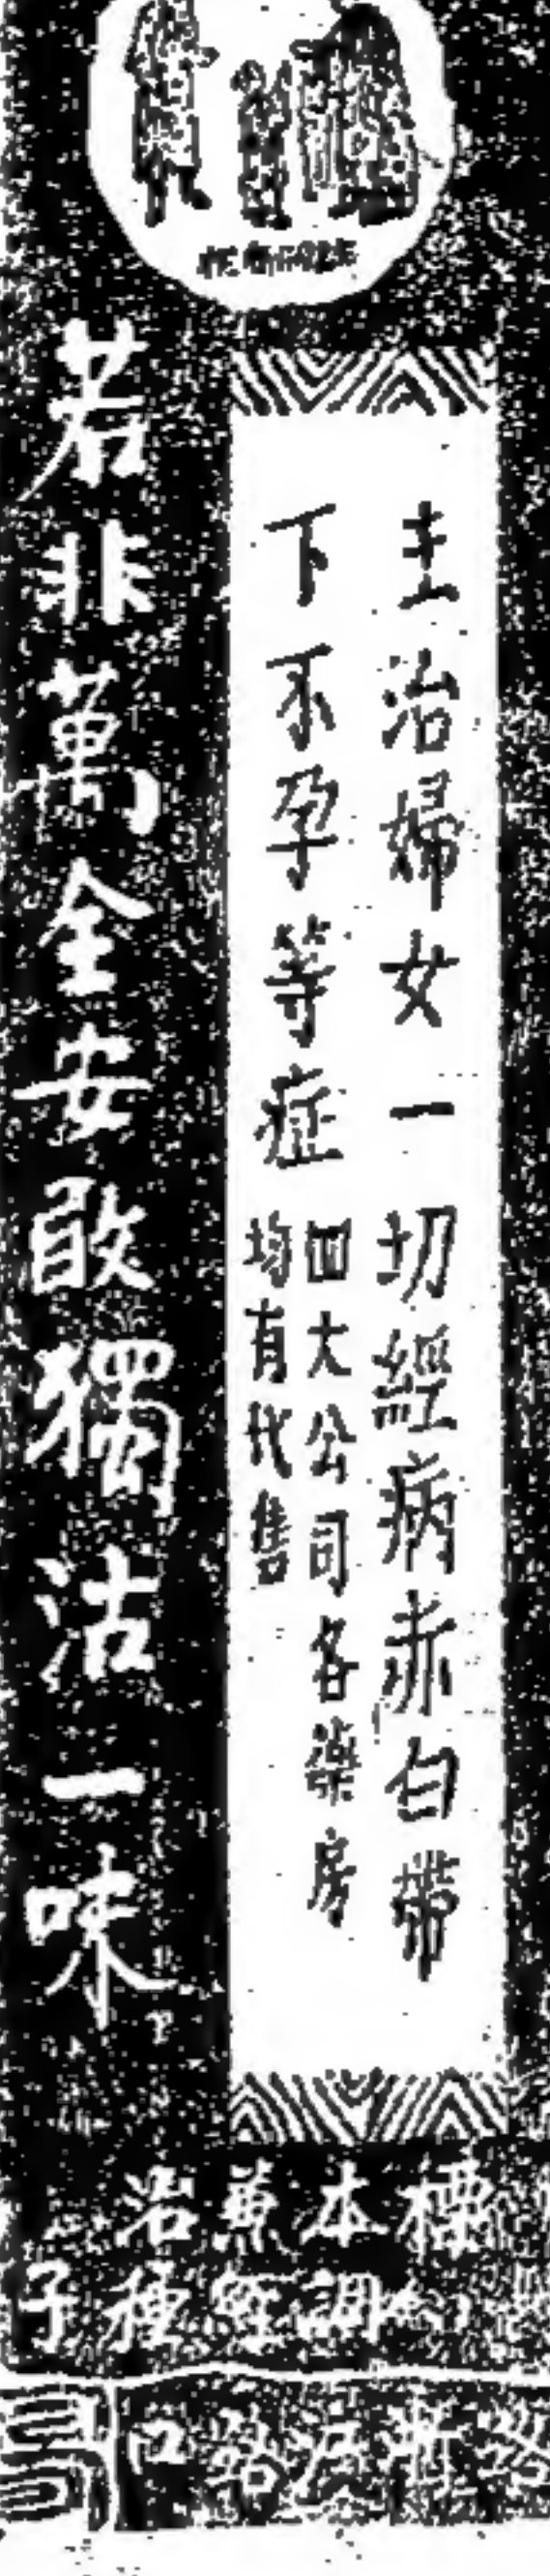 主治婦女一切經病赤白帶
下不孕等症
四大公司各藥房
均有代售
若非萬全安敢獨沽一味
標本兼治
調經種子